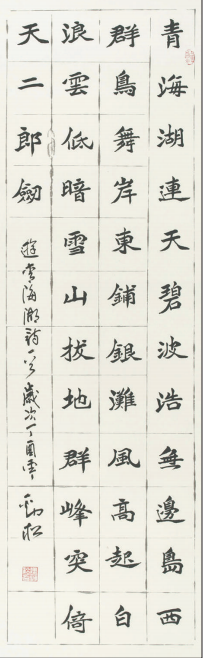 青海湖連天碧波浩無邊島西
群鳥舞岸東鋪銀灘風高起白
浪雲低暗雪山拔地群峰突倚
天二郎劍
遊青海湖詩一首歲次丁酉年
勁松